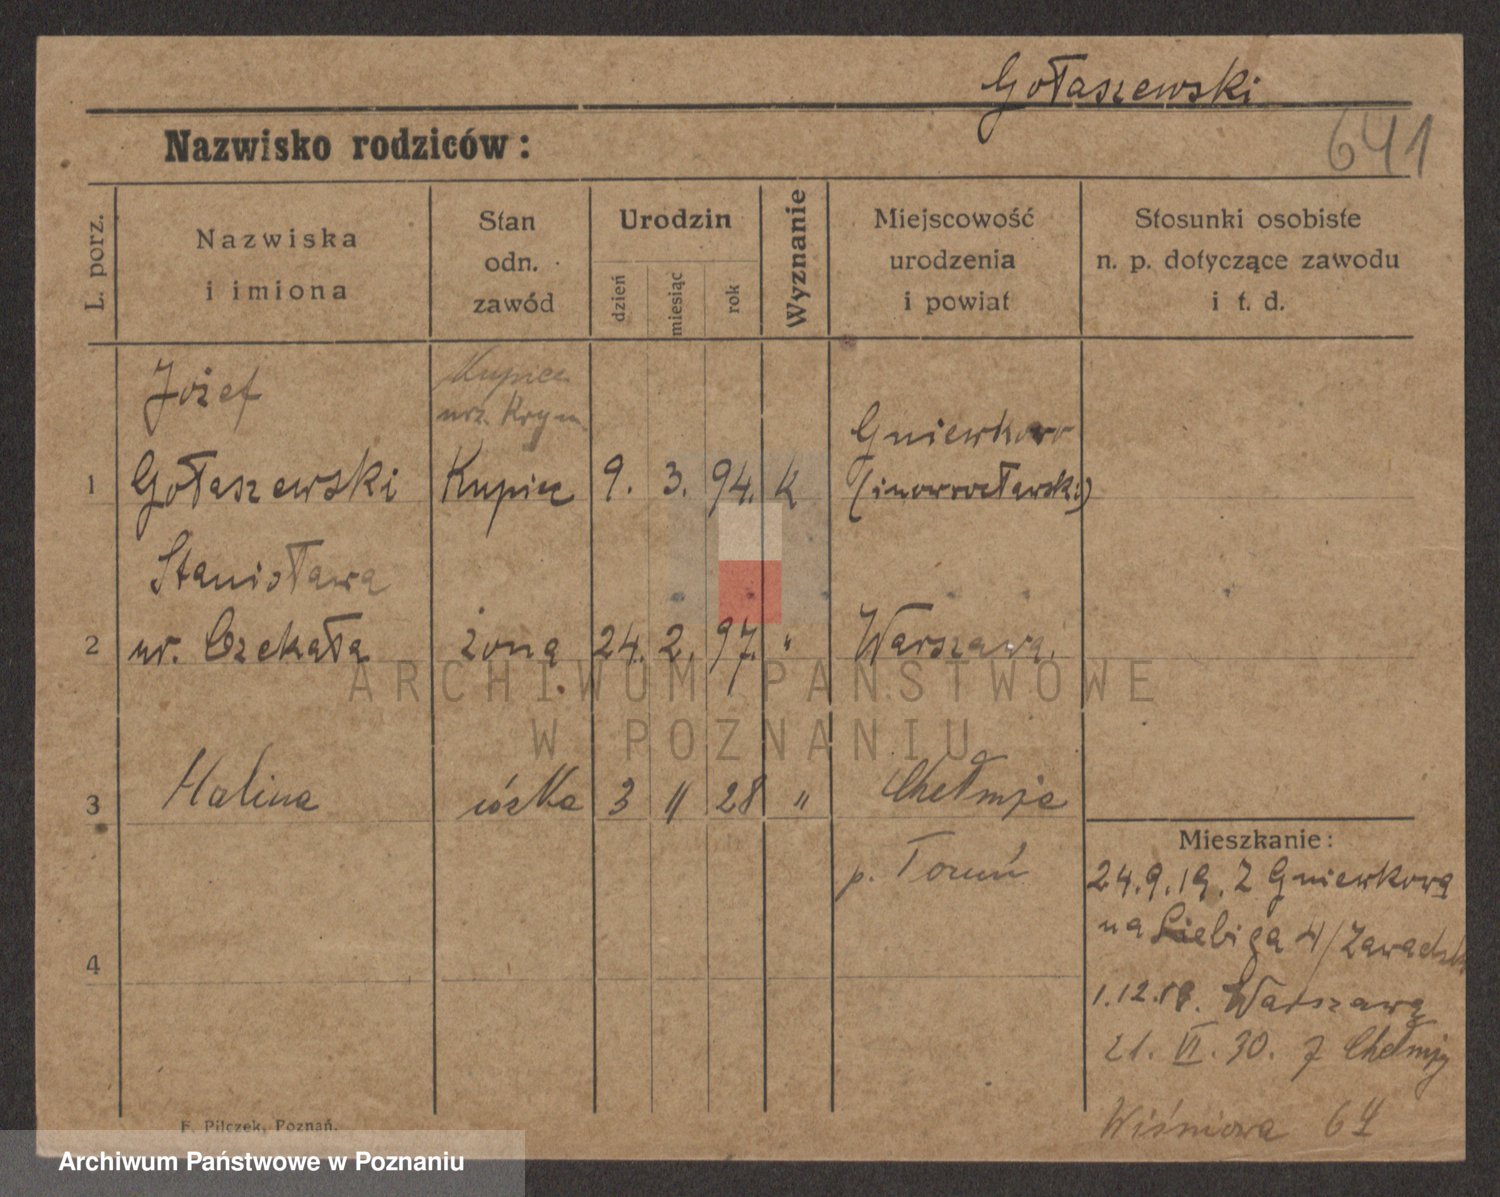 Gołaszewski
641
Nazwisko rodziców:
L. porz.
Nazwiska
i imiona
Stan
odn.
zawód
Urodzin
dzień
miesiąc
rok
Wyznanie
Miejscowość
urodzenia
i powiat
Stosunki osobiste
n. p. dotyczące zawodu
i t. d.
Józef Kupiec
urz. Krym.
Gniewkowo
1 Gołaszewski Kupiec 9. 3. 94. k (inowrocławski)
Stanisława
2 ur. Czekała żona 24. 2. 97. " Warszawa.
3 Halina córka 3 11 28 " Chełmża
p. Toruń
4
Mieszkanie:
24.9.19. Z Gniewkowa
na Liebiga 4/Zawadzk
1.12.19. Warszawa
21. VI. 30. z Chełmży
Wiśniowa 64
F. Pilczek, Poznań.
ARCHIWUM PAŃSTWOWE
W POZNANIU
Archiwum Państwowe w Poznaniu